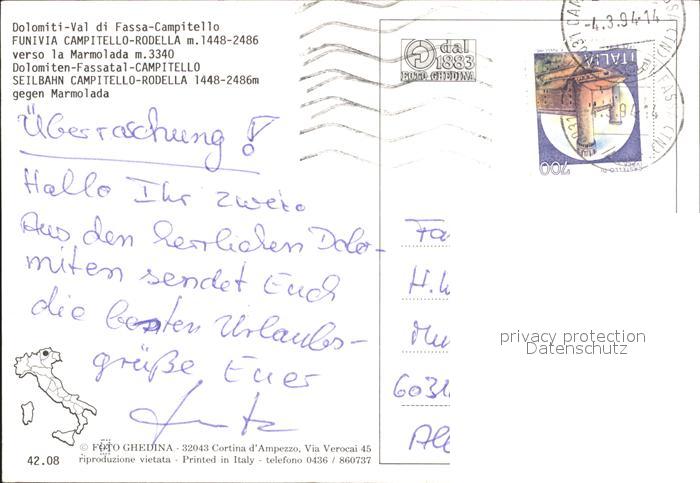 Dolomiti-Val di Fassa-Campitello
FUNIVIA CAMPITELLO-RODELLA m.1448-2486
verso la Marmolada m.3340
Dolomiten-Fassatal-CAMPITELLO
SEILBAHN CAMPITELLO-RODELLA 1448-2486m
gegen Marmolada
dal
1883
FOTO GHEDINA
-4.3.94-14
ITALIA
700
Überraschung!
Hallo Ihr zwei.
Aus den herrlichen Dolo-
miten sendet Euch
die besten Urlaubs-
grüße Euer
Fa
H.
6031
privacy protection
Datenschutz
42.08
© FOTO GHEDINA - 32043 Cortina d'Ampezzo, Via Verocai 45
riproduzione vietata - Printed in Italy - telefono 0436 / 860737